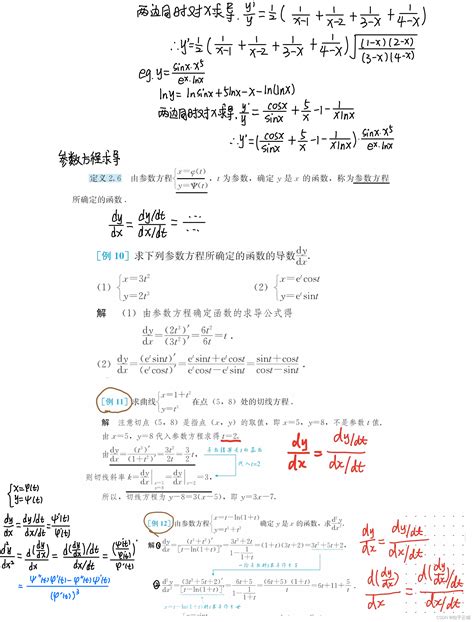 两边同时对x求导. y'/y = 1/2 ( 1/(x-1) + 1/(x-2) + 1/(3-x) + 1/(4-x) )
∴ y' = 1/2 ( 1/(x-1) + 1/(x-2) + 1/(3-x) + 1/(4-x) ) √((1-x)(2-x)/(3-x)(4-x))
eg. y = sinx·x⁵/(eˣ·lnx)
lny = lnsinx + 5lnx - x - ln(lnx)
两边同时对x求导. y'/y = cosx/sinx + 5/x - 1 - 1/(xlnx)
∴ y' = ( cosx/sinx + 5/x - 1 - 1/(xlnx) ) · sinx·x⁵/(eˣ·lnx)
参数方程求导
定义 2.6 由参数方程 { x=φ(t) y=Ψ(t) , t 为参数, 确定 y 是 x 的函数, 称为参数方程
所确定的函数.
dy/dx = (dy/dt)/(dx/dt) = ⋯/⋯
[例 10] 求下列参数方程所确定的函数的导数 dy/dx.
(1) { x=3t² y=2t³ (2) { x=eᵗcost y=eᵗsint
解 (1) 由参数方程确定函数的求导公式得
dy/dx = (2t³)'/(3t²)' = 6t²/6t = t.
(2) dy/dx = (eᵗsint)'/(eᵗcost)' = (eᵗsint+eᵗcost)/(eᵗcost-eᵗsint) = (sint+cost)/(cost-sint).
[例 11] 求曲线 { x=1+t² y=t³ 在点 (5, 8) 处的切线方程.
解 注意切点 (5, 8) 是指点 (x, y) 的取值, 即 x=5, y=8, 不是参数 t 值.
由 x=5, y=8 代入参数方程求得 t=2.
由 dy/dx = (t³)'/(1+t²)' = 3t²/2t = 3/2 t,
代入t=2
dy/dx = (dy/dt)/(dx/dt)
则切线斜率 k= dy/dx | = dy/dx | =3.
所以, 切线方程为 y-8=3(x-5), 即 y=3x-7.
{ x=φ(t) y=Ψ(t)
dy/dx = (dy/dt)/(dx/dt) = Ψ'(t)/φ'(t)
d²y/dx² = d(dy/dx)/dx = (d(dy/dx)/dt)/(dx/dt) = (Ψ'(t)/φ'(t))'/φ'(t)
= (Ψ''(t)φ'(t)-φ''(t)Ψ'(t))/(φ'(t))³
[例 12] 由参数方程 { x=t-ln(1+t) y=t³+t² 确定 y 是 x 的函数, 求 d²y/dx².
解 dy/dx = (t³+t²)'/[t-ln(1+t)]' = (3t²+2t)/(1-1/(1+t)) = (1+t)(3t+2) = 3t²+5t+2,
d²y/dx² = (3t²+5t+2)'/[t-ln(1+t)]' = (6t+5)/(1-1/(1+t)) = (6t+5)(1+t)/t = 6t+11+5/t.
dy/dx = (dy/dt)/(dx/dt)
d(dy/dx)/dx = (d(dy/dx)/dt)/(dx/dt)